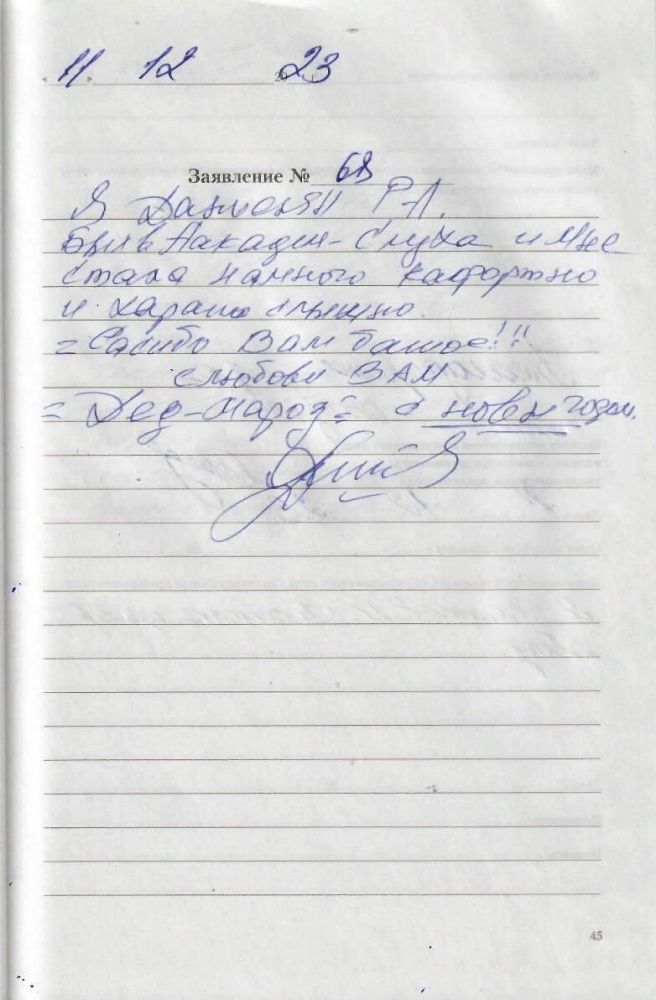 11 12 23
Заявление № 68
Я Р.А.
Был в Аакадем-Слуха и Мне
стала намного кафортно
и харашо слышно.
= Спасибо Вам башое!!!
с любови ВАМ
= Дед-Мароз = с новым годом.
45